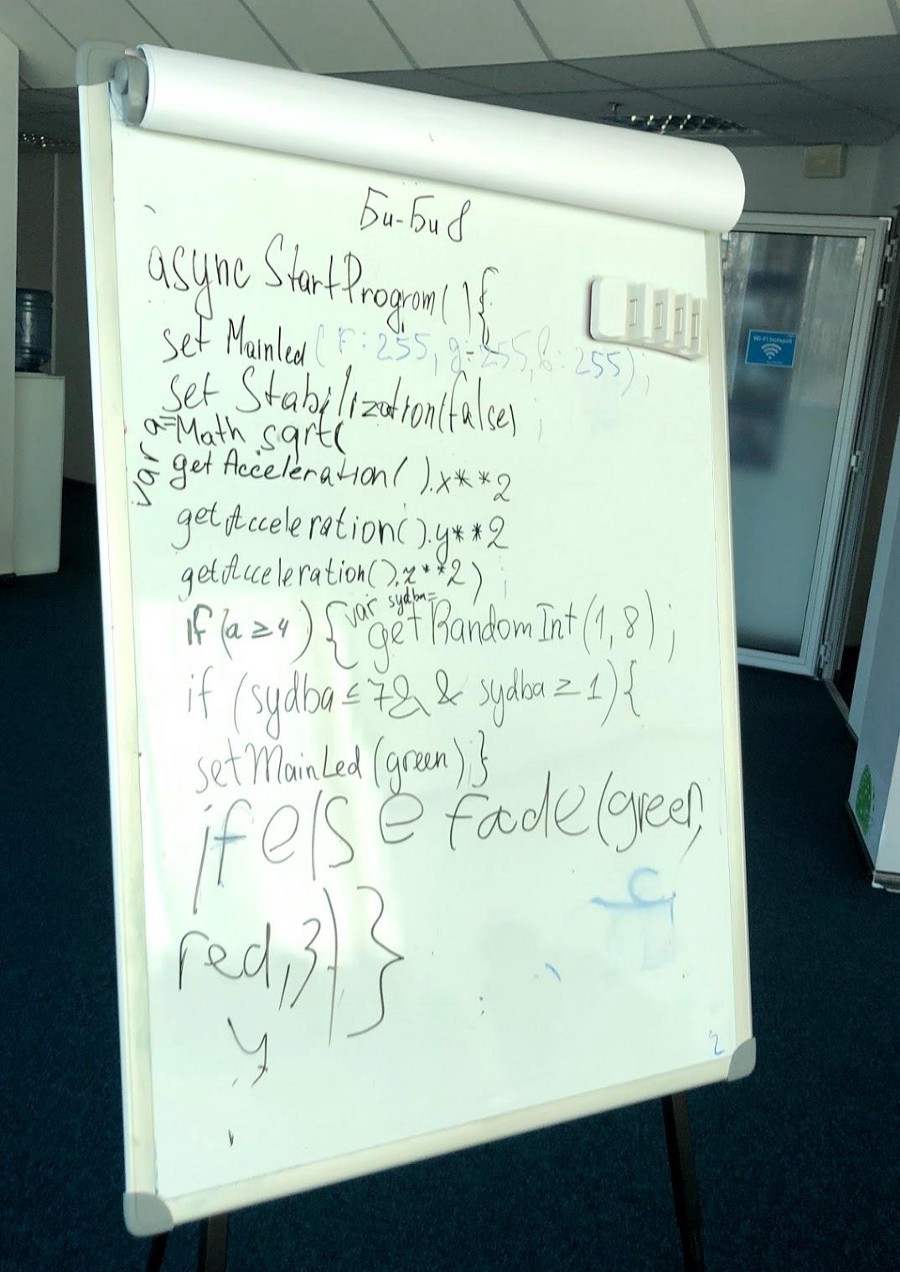 Би-Би 8
async StartProgrom( ){
set Mainled (r:255, g:255, b:255);
set Stabilization(false) ;
var a=Math sqrt(
getAcceleration( ).x**2
getAcceleration().y**2
getAcceleration().z**2) ;
if (a≥4) {var sydba= getRandomInt(1,8) ;
if (sydba≤7&& sydba≥1){
setMainLed(green);}
if else fade(green,
red,3) }
2